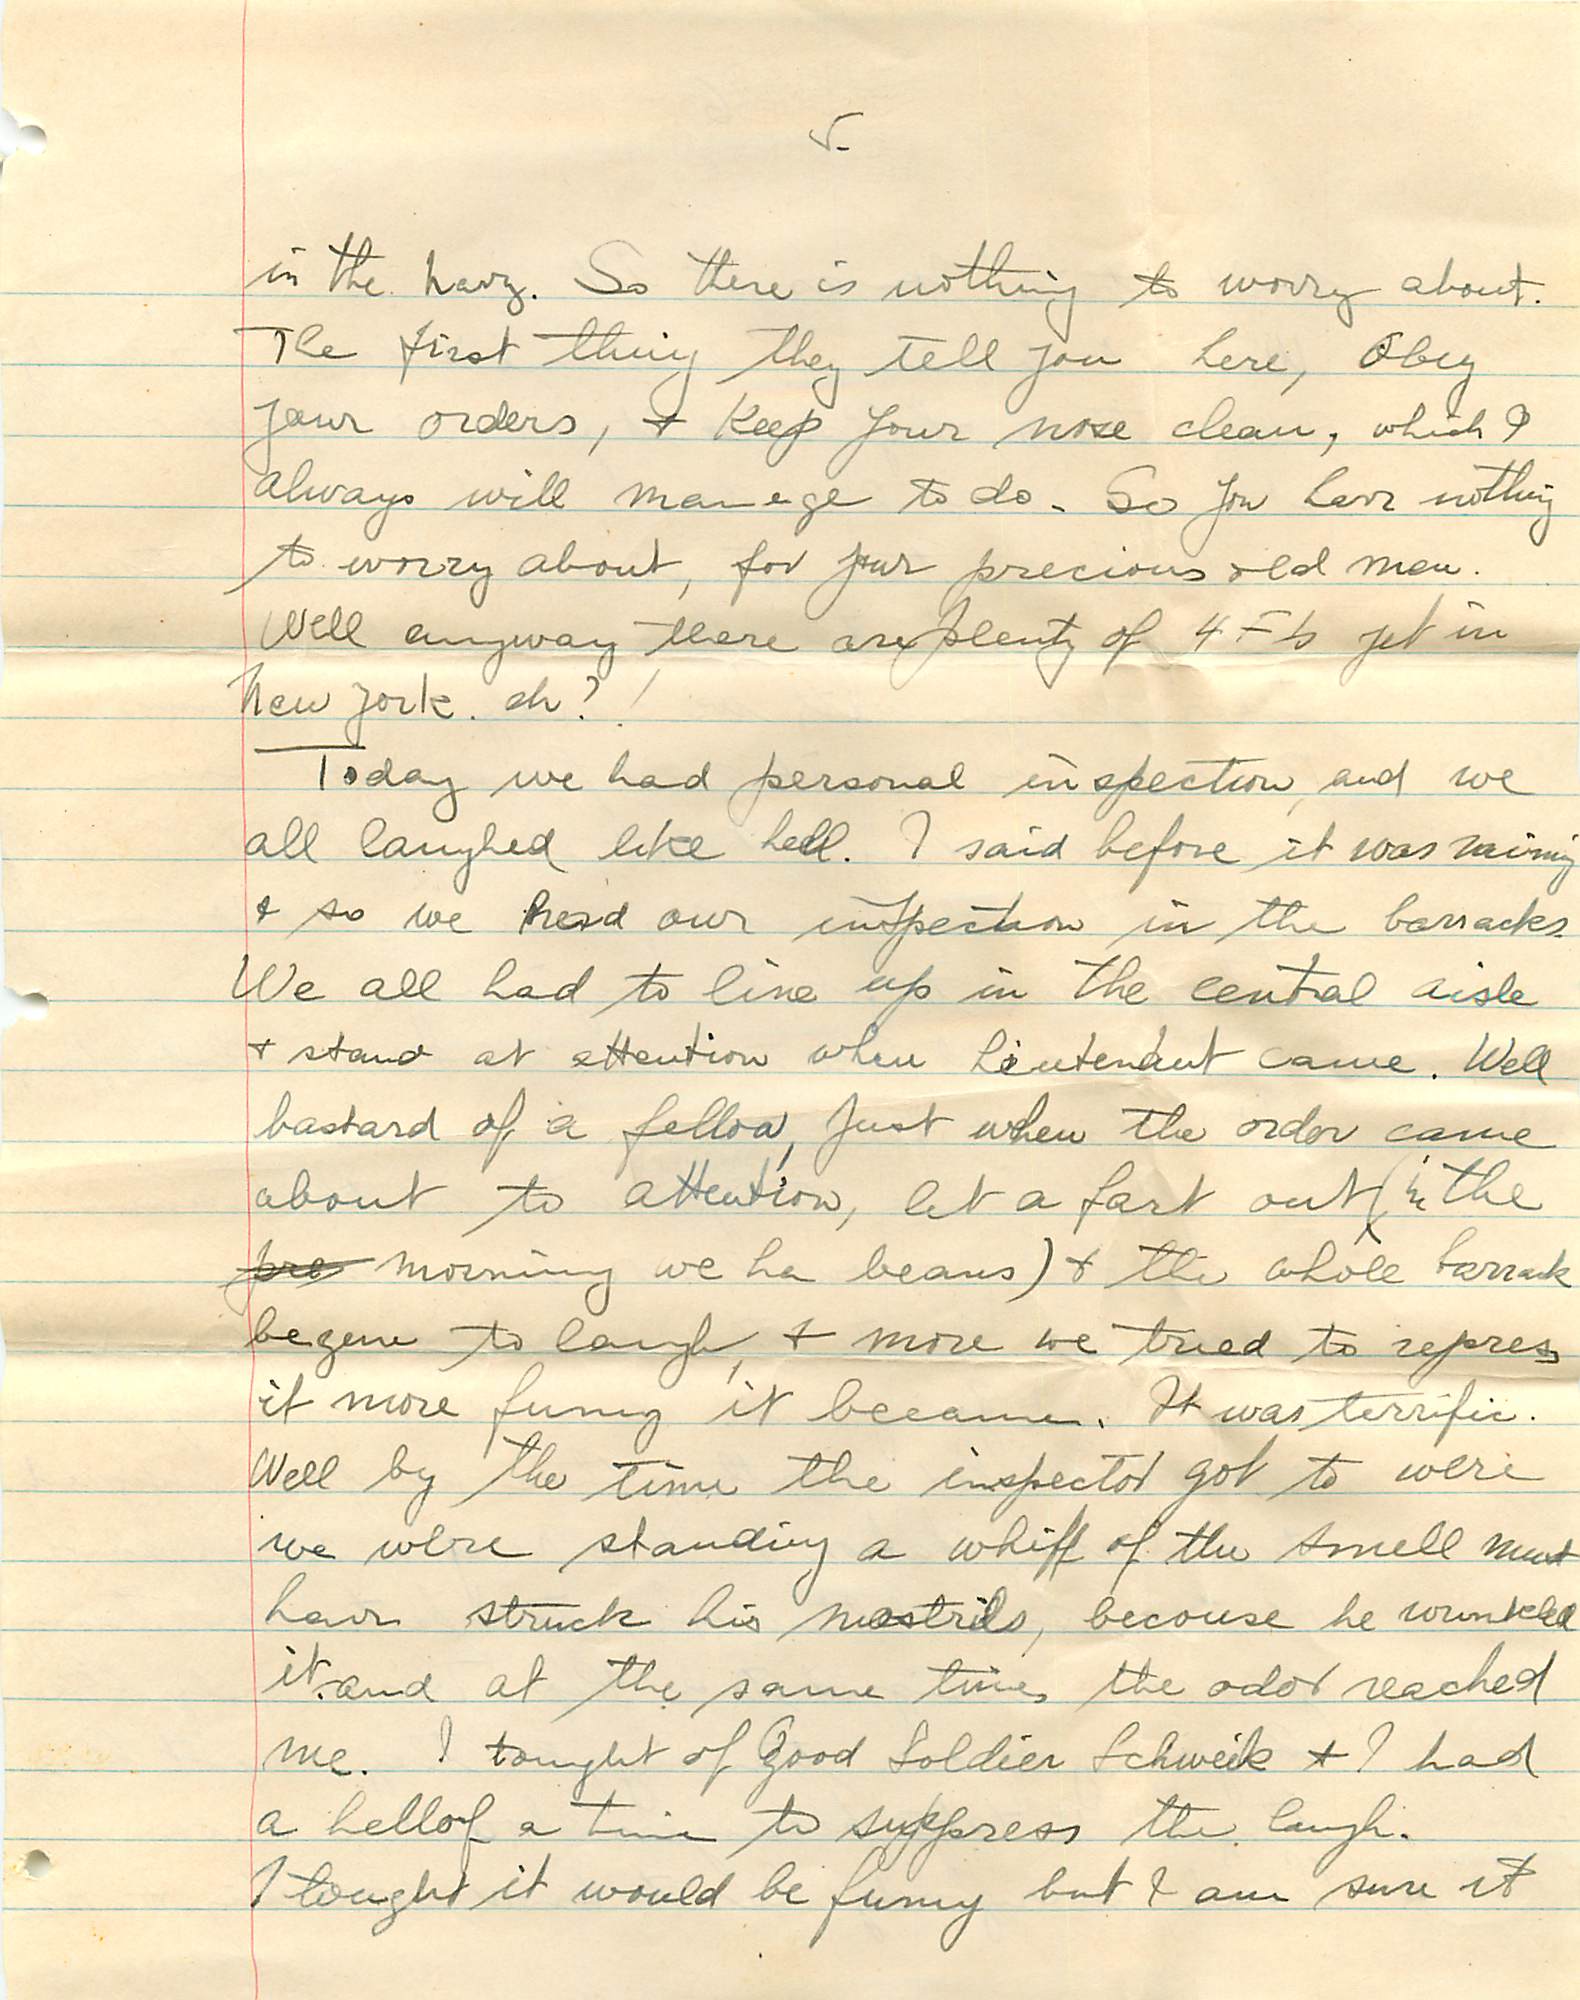 5.
in the navy. So there is nothing to worry about.
The first thing they tell you here, Obey
your orders, + Keep your nose clean, which I
always will manege to do. So you have nothing
to worry about, for your precious old man.
Well anyway there are plenty of 4 Fs yet in
New York. eh?!
Today we had personal inspection, and we
all laughed like hell. I said before it was raining
+ so we had our inspection in the barracks.
We all had to line up in the central aisle
+ stand at attention when Lieutendnt came. Well
bastard of a fellow, just when the order came
about to attention, let a fart out (in the
pre morning we ha beans) + the whole barrack
begene to laugh, + more we tried to repress
it more funny it became. It was terrific.
Well by the time the inspector got to were
we were standing a whiff of the smell must
have struck his nostrils, becouse he wrinkled
it. and at the same time, the odor reached
me. I tought of Good Soldier Schweik + I had
a hellof a time to suppress the laugh.
I tought it would be funny but I am sure it